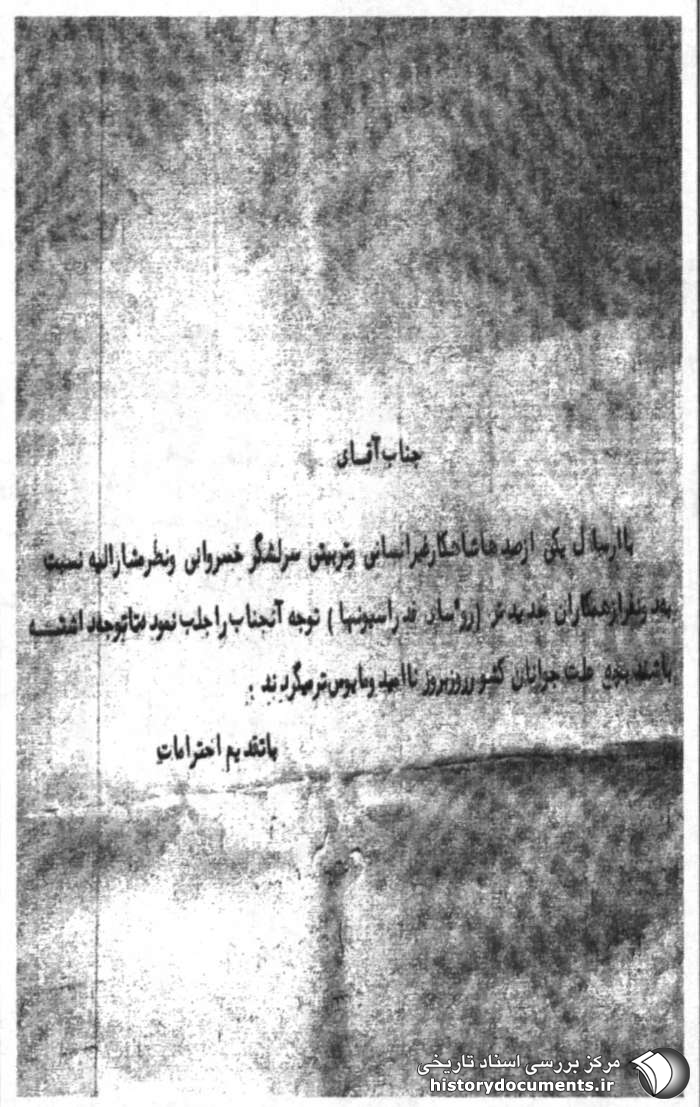 جناب آقای
با ارسال یکی از صدها شاهکار غیر انسانی و تربیتی سرلشگر خسروانی و نظر مشارالیه نسبت
بدو نفر از همکاران خدیدش (رؤسای فدراسیونها) توجه آنجناب را جلب نمود تا توجه داشته
باشند علت جوانان کشور روز بروز ناامید و مایوس تر میگردند .
با تقدیم احترامات
مرکز بررسی اسناد تاریخی
historydocuments.ir